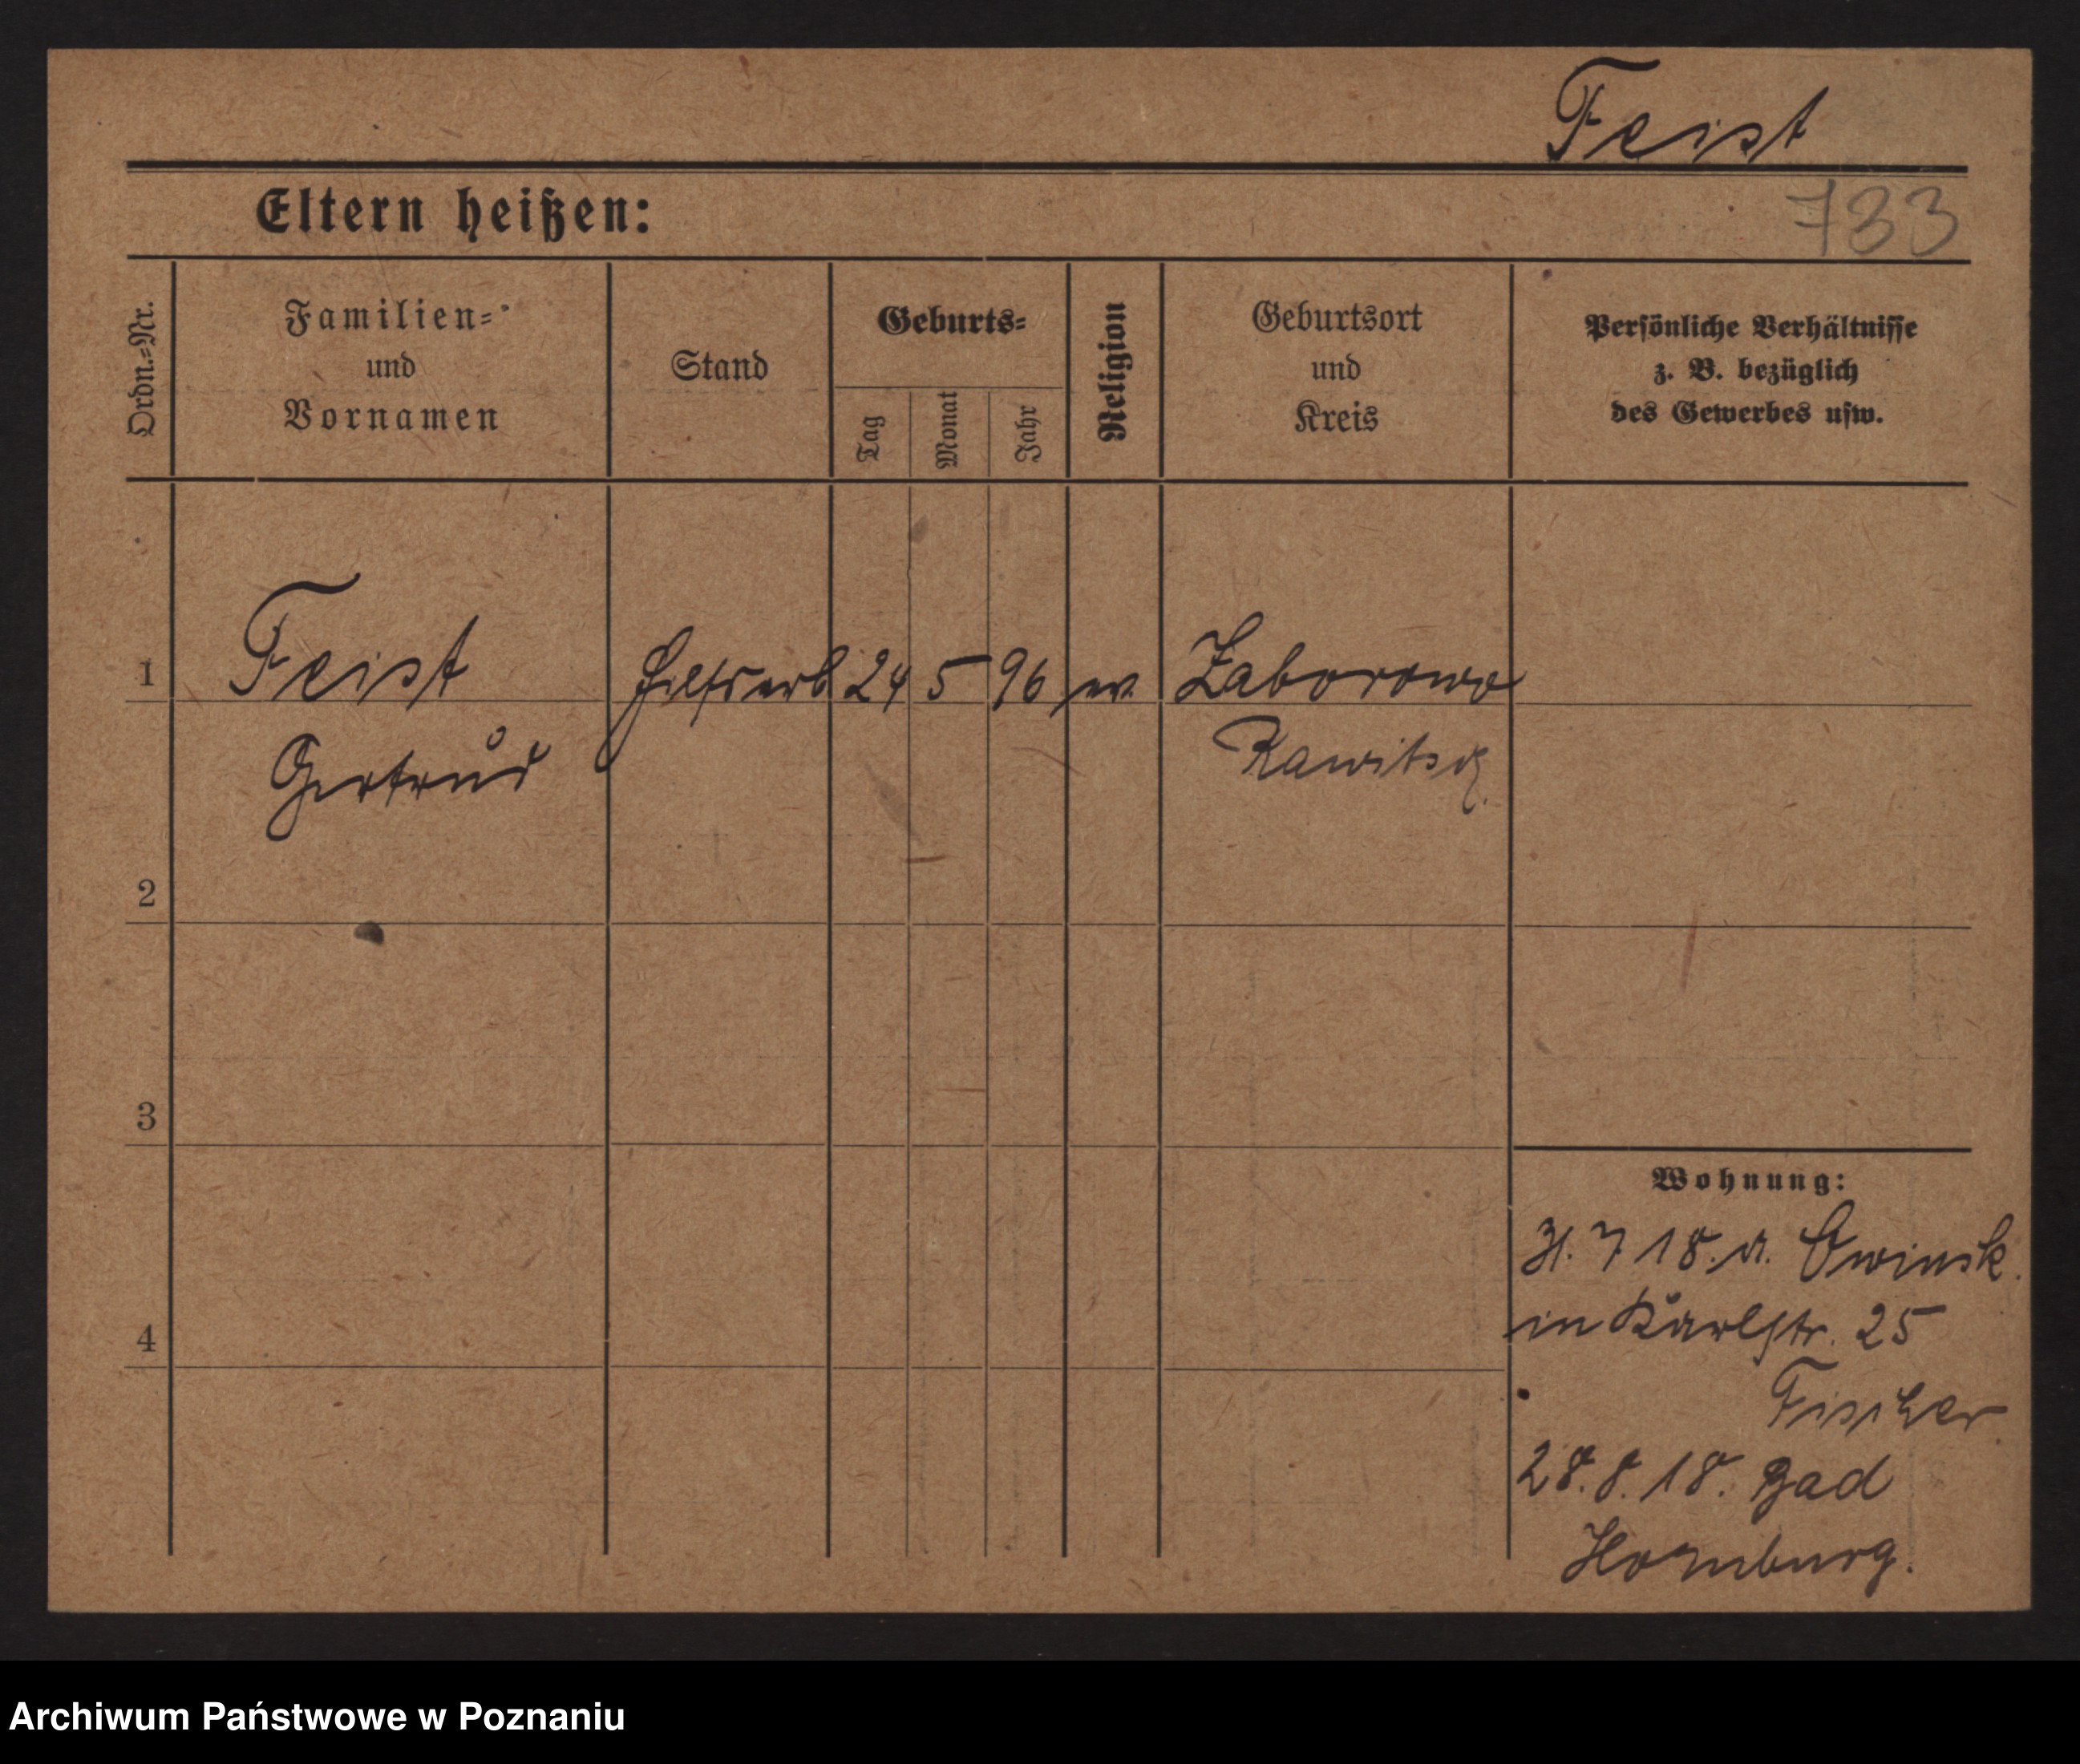 Feist
Eltern heißen:
733
Ordn.=Nr.
Familien=
und
Vornamen
Stand
Geburts=
Tag
Monat
Jahr
Religion
Geburtsort
und
Kreis
Persönliche Verhältnisse
z. B. bezüglich
des Gewerbes usw.
1 Feist Hilfsarb 24 5 96 ev Zaborowo
Gertrud Rawitsch
2
3
4
Wohnung:
31. 7 18. v. Owinsk.
in Karlstr. 25
Fischer
28. 8. 18. Bad
Homburg.
Archiwum Państwowe w Poznaniu